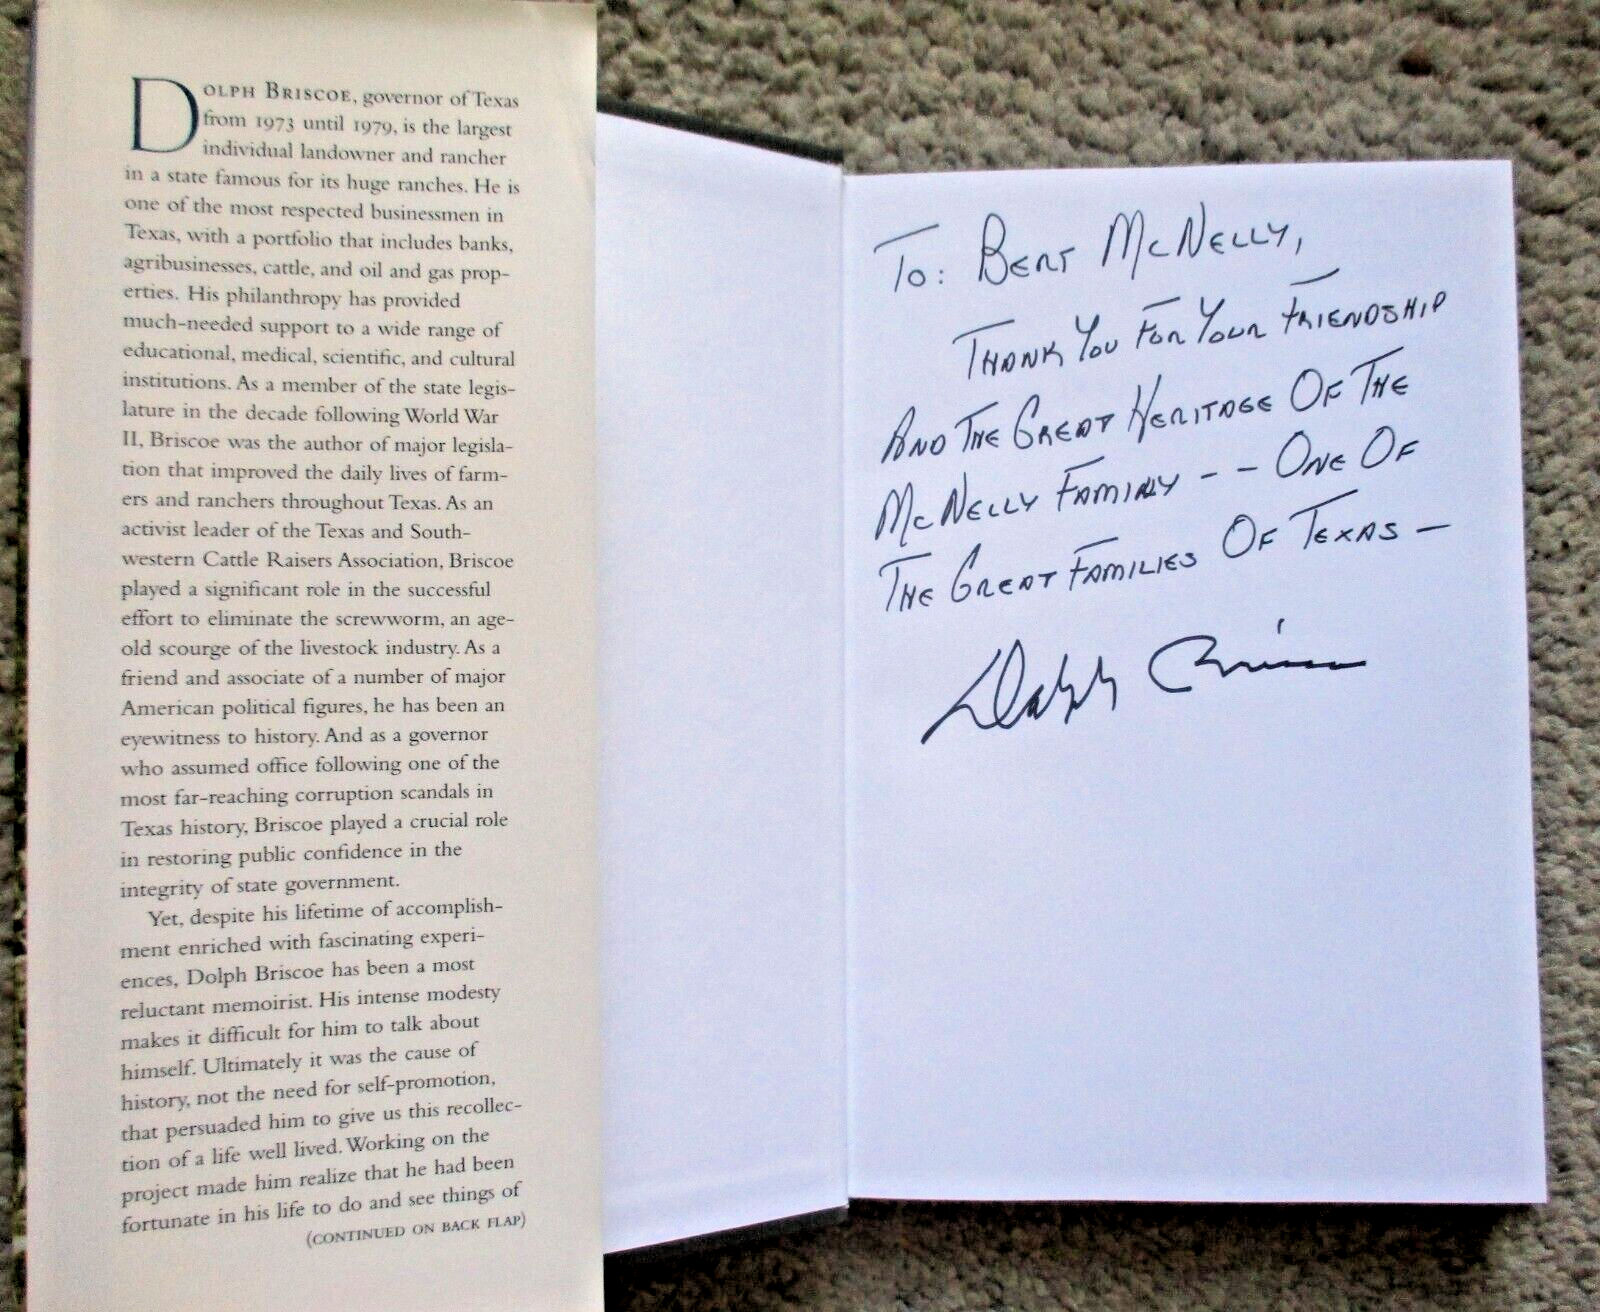 DOLPH BRISCOE, governor of Texas
from 1973 until 1979, is the largest
individual landowner and rancher
in a state famous for its huge ranches. He is
one of the most respected businessmen in
Texas, with a portfolio that includes banks,
agribusinesses, cattle, and oil and gas prop-
erties. His philanthropy has provided
much-needed support to a wide range of
educational, medical, scientific, and cultural
institutions. As a member of the state legis-
lature in the decade following World War
II, Briscoe was the author of major legisla-
tion that improved the daily lives of farm-
ers and ranchers throughout Texas. As an
activist leader of the Texas and South-
western Cattle Raisers Association, Briscoe
played a significant role in the successful
effort to eliminate the screwworm, an age-
old scourge of the livestock industry. As a
friend and associate of a number of major
American political figures, he has been an
eyewitness to history. And as a governor
who assumed office following one of the
most far-reaching corruption scandals in
Texas history, Briscoe played a crucial role
in restoring public confidence in the
integrity of state government.
Yet, despite his lifetime of accomplish-
ment enriched with fascinating experi-
ences, Dolph Briscoe has been a most
reluctant memoirist. His intense modesty
makes it difficult for him to talk about
himself. Ultimately it was the cause of
history, not the need for self-promotion,
that persuaded him to give us this recollec-
tion of a life well lived. Working on the
project made him realize that he had been
fortunate in his life to do and see things of
(CONTINUED ON BACK FLAP)
TO: BERT MCNELLY,
THANK YOU FOR YOUR FRIENDSHIP
AND THE GREAT HERITAGE OF THE
MCNELLY FAMILY -- ONE OF
THE GREAT FAMILIES OF TEXAS -
Dolph Briscoe